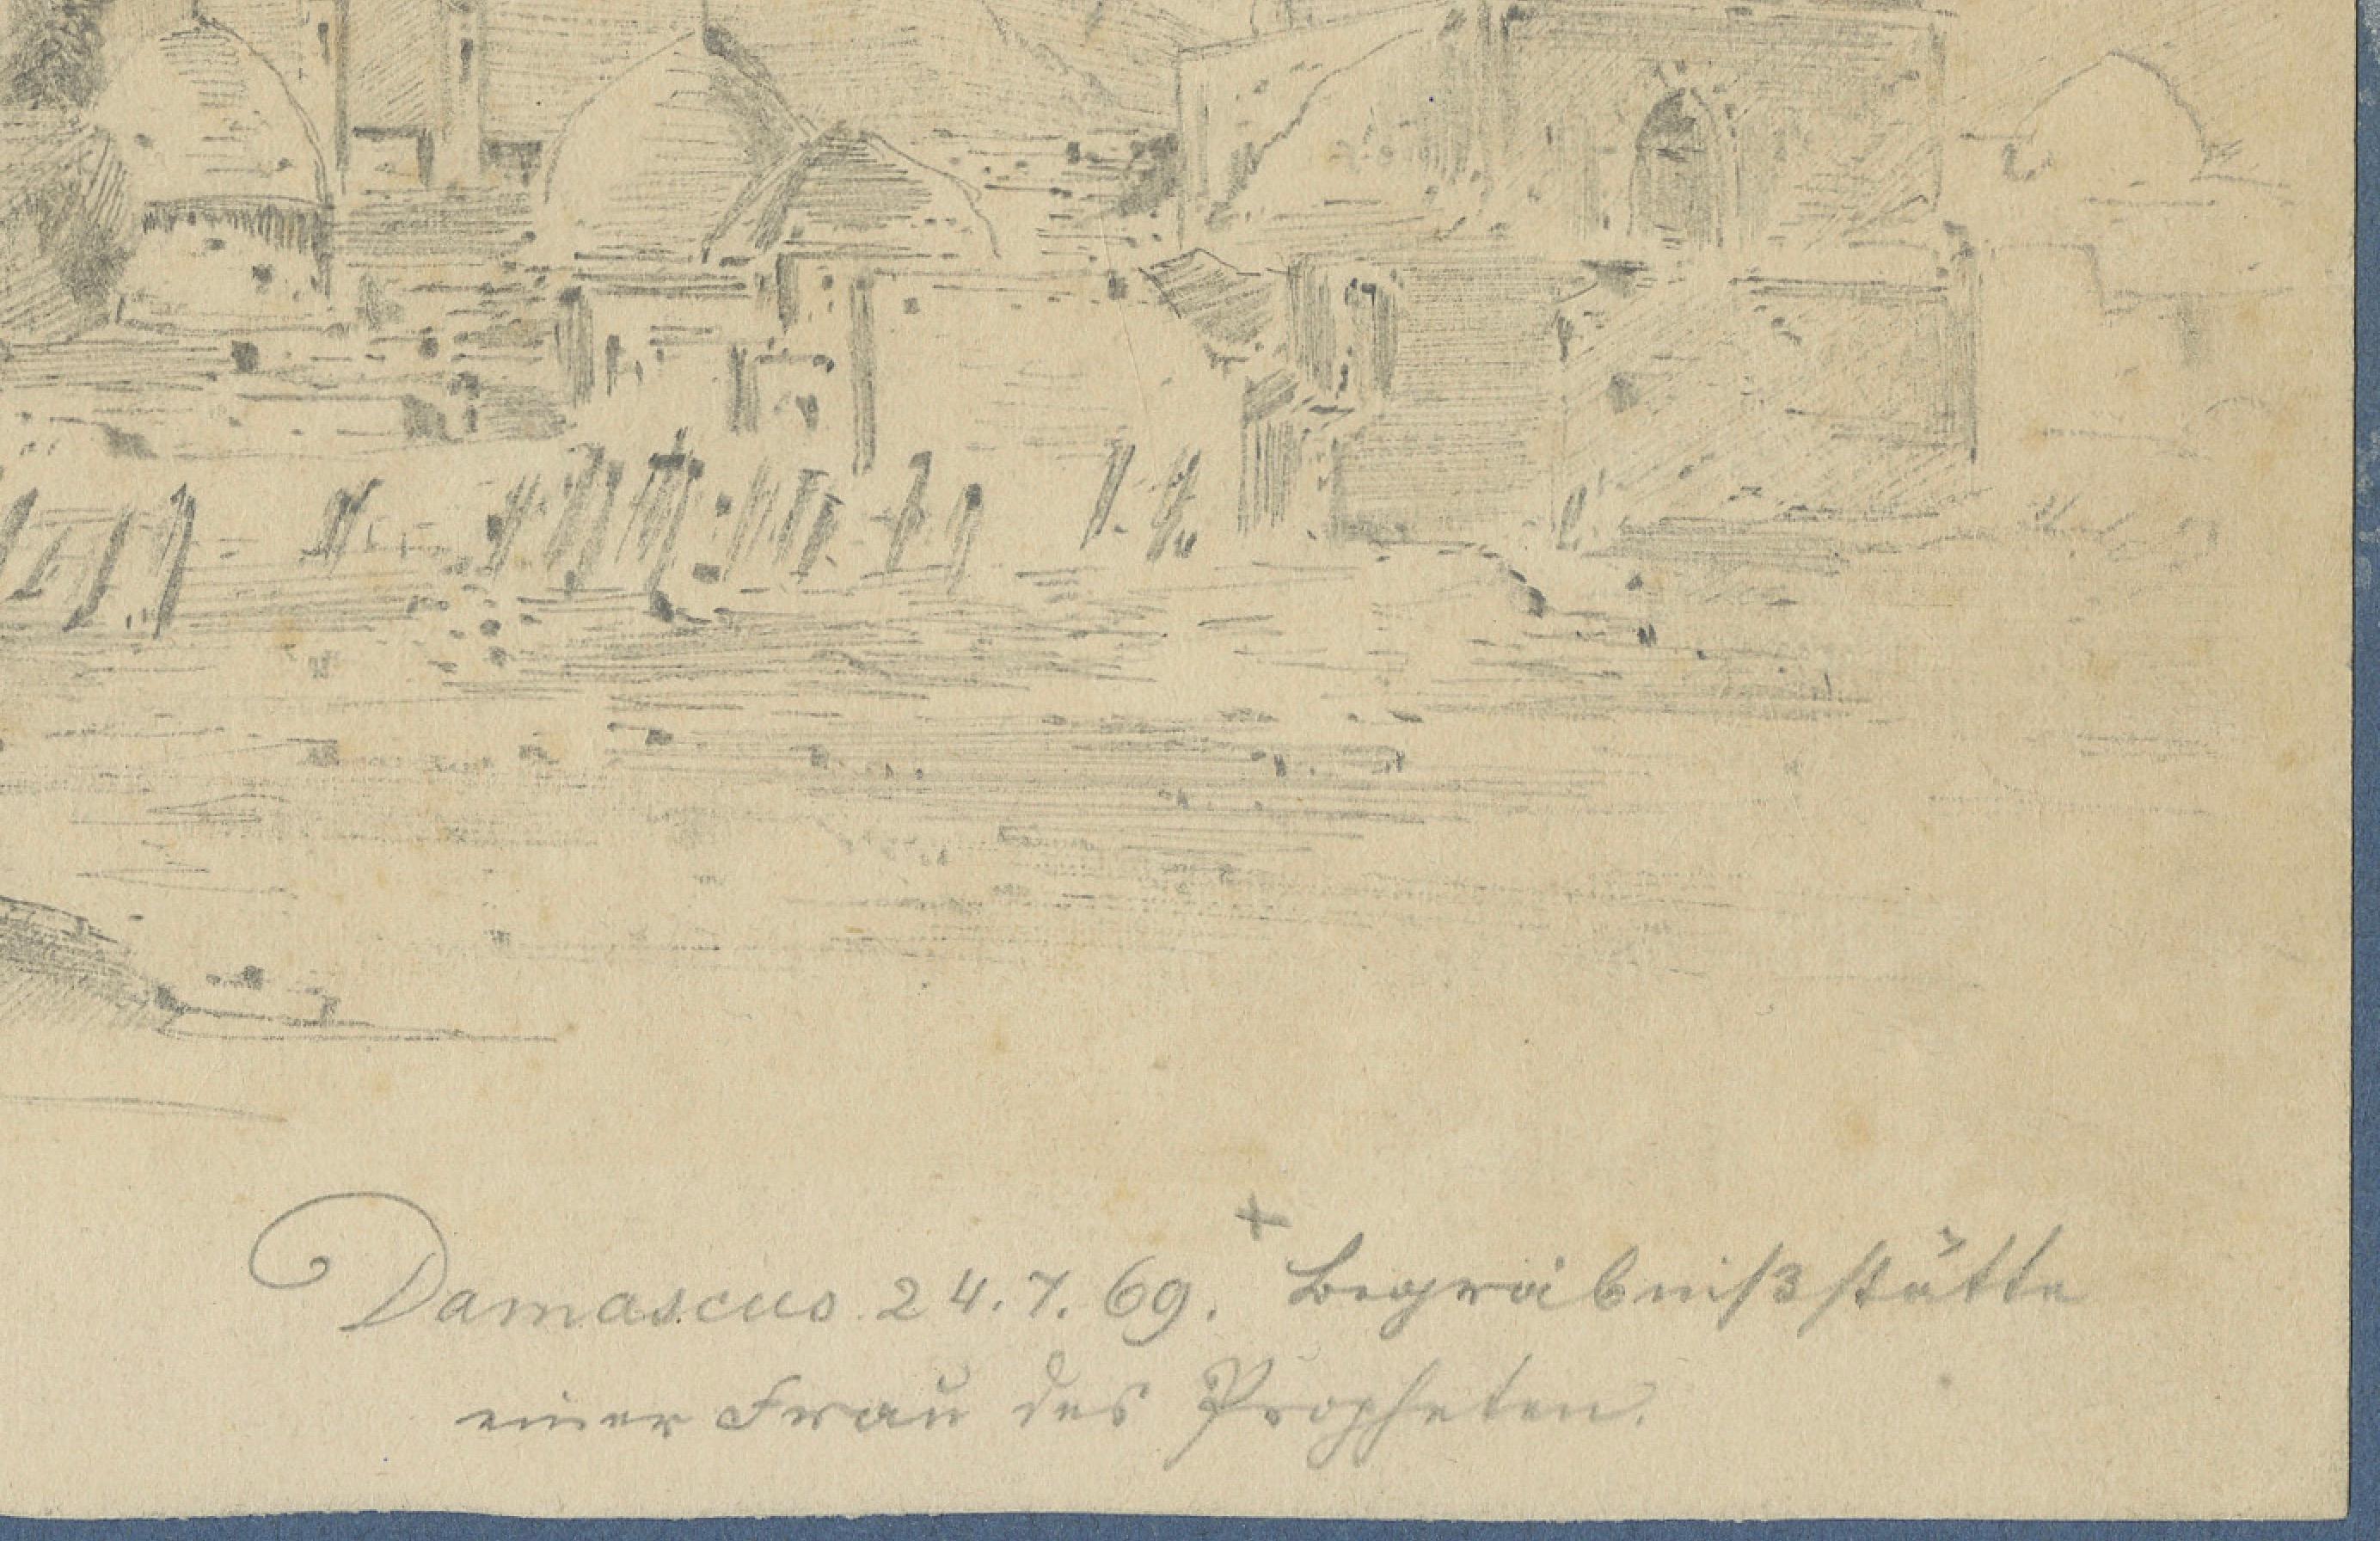 Damascus 24.7.69. + Begräbnißstätte
einer Frau des Propheten.